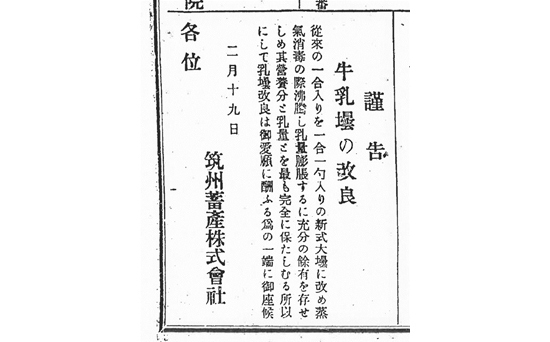 謹告
牛乳壜の改良
從來の一合入りを一合一勺入りの新式大壜に改め蒸
氣消毒の際沸騰し乳量膨脹するに充分の餘有を存せ
しめ其營養分と乳量とを最も完全に保たしむる所以
にして乳壜改良は御愛顧に酬ふる爲の一端に御座候
二月十九日
筑州蓄產株式會社
各位